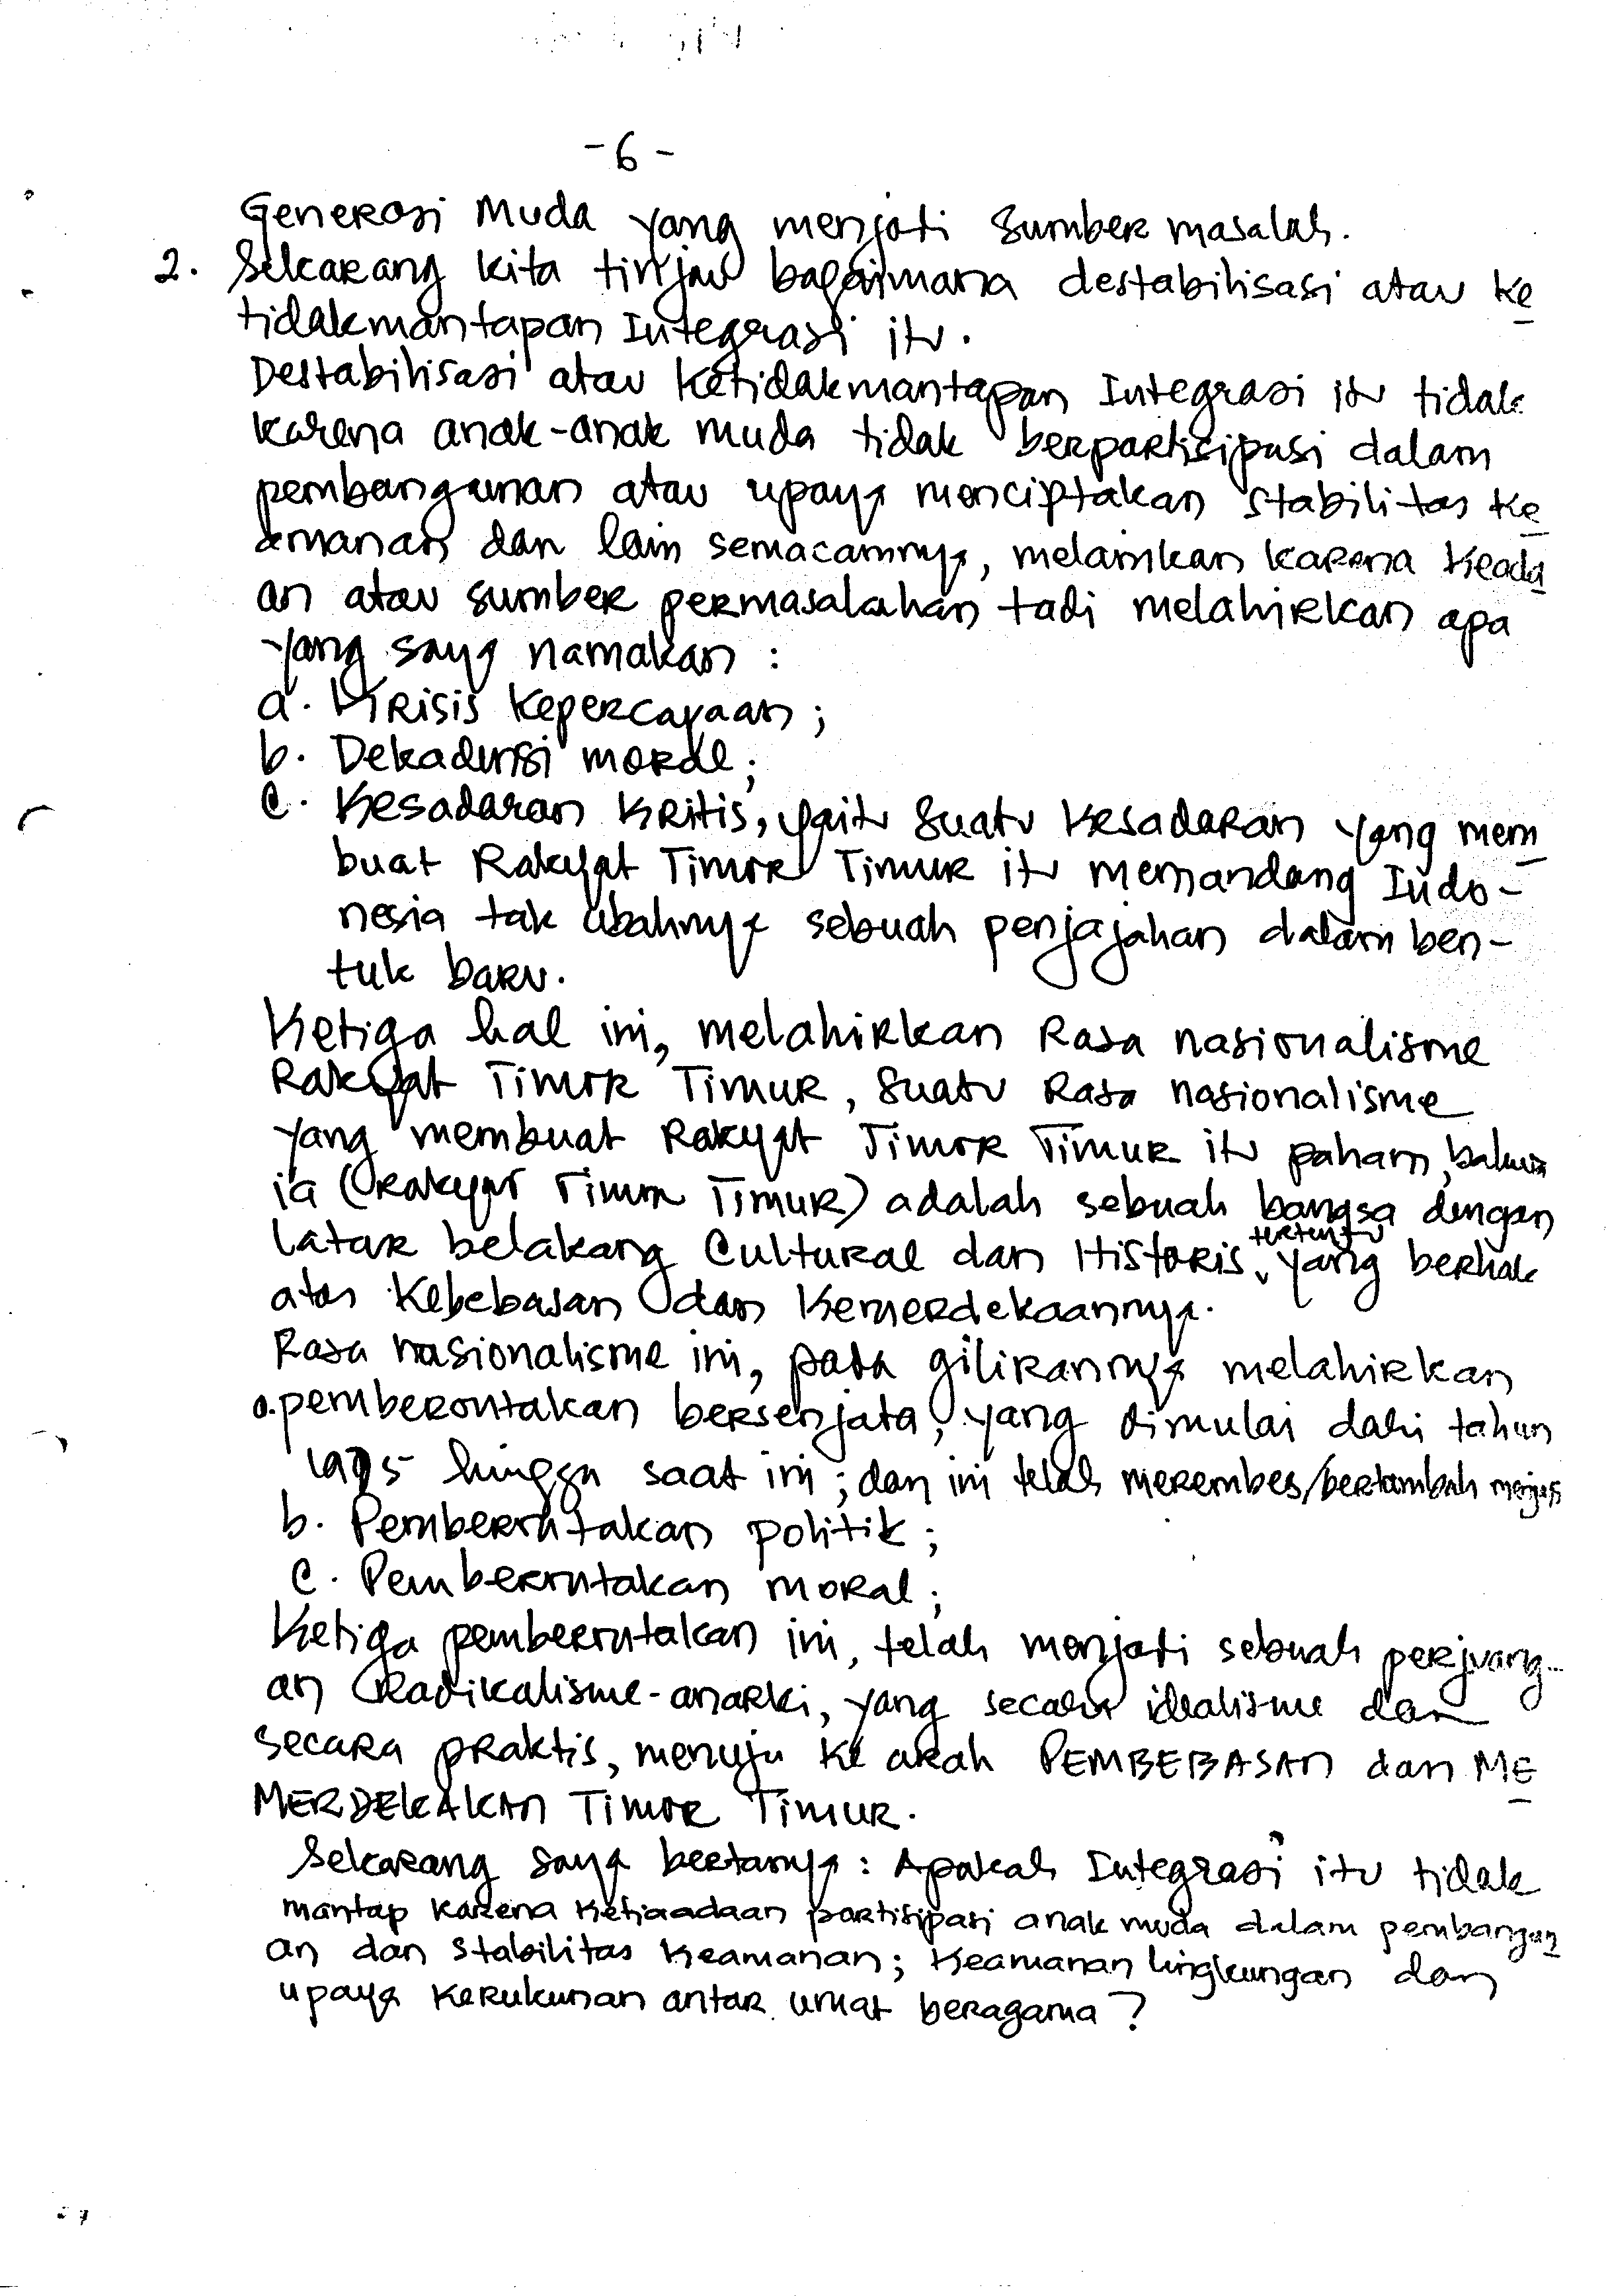 -6-
Generasi Muda yang menjadi sumber masalah.
2. Sekarang kita tinjau bagaimana destabilisasi atau ke
tidakmantapan Integrasi itu.
Destabilisasi atau Ketidakmantapan Integrasi itu tidak
karena anak-anak muda tidak berpartisipasi dalam
pembangunan atau upaya menciptakan stabilitas ke
amanan dan lain semacamnya, melainkan karena keada
an atau sumber permasalahan tadi melahirkan apa
yang saya namakan :
a. Krisis Kepercayaan ;
b. Dekadensi moral ;
c. Kesadaran Kritis, yaitu suatu Kesadaran yang mem
buat Rakyat Timor Timur itu memandang Indo-
nesia tak ubahnya sebuah penjajahan dalam ben-
tuk baru.
Ketiga hal ini, melahirkan Rasa nasionalisme
Rakyat Timor Timur, suatu Rasa nasionalisme
yang membuat Rakyat Timor Timur itu paham, bahwa
ia (Rakyat Timor Timur) adalah sebuah bangsa dengan
latar belakang Cultural dan Historis tertentu yang berhak
atas Kebebasan dan Kemerdekaannya.
Rasa nasionalisme ini, pada gilirannya melahirkan
a. pemberontakan bersenjata, yang dimulai dari tahun
1975 hingga saat ini ; dan ini telah merembes/bertambah menjadi
b. Pemberontakan politik ;
c. Pemberontakan moral ;
Ketiga pemberontakan ini, telah menjadi sebuah perjuang-
an Radikalisme-anarki, yang secara idealisme dan
secara praktis, menuju ke arah PEMBEBASAN dan ME
MERDEKAKAN TIMOR TIMUR.
Sekarang saya bertanya : Apakah Integrasi itu tidak
mantap karena Ketiaadaan partisipasi anak muda dalam pembangun
an dan stabilitas Keamanan ; Keamanan lingkungan dan
upaya Kerukunan antar umat beragama ?